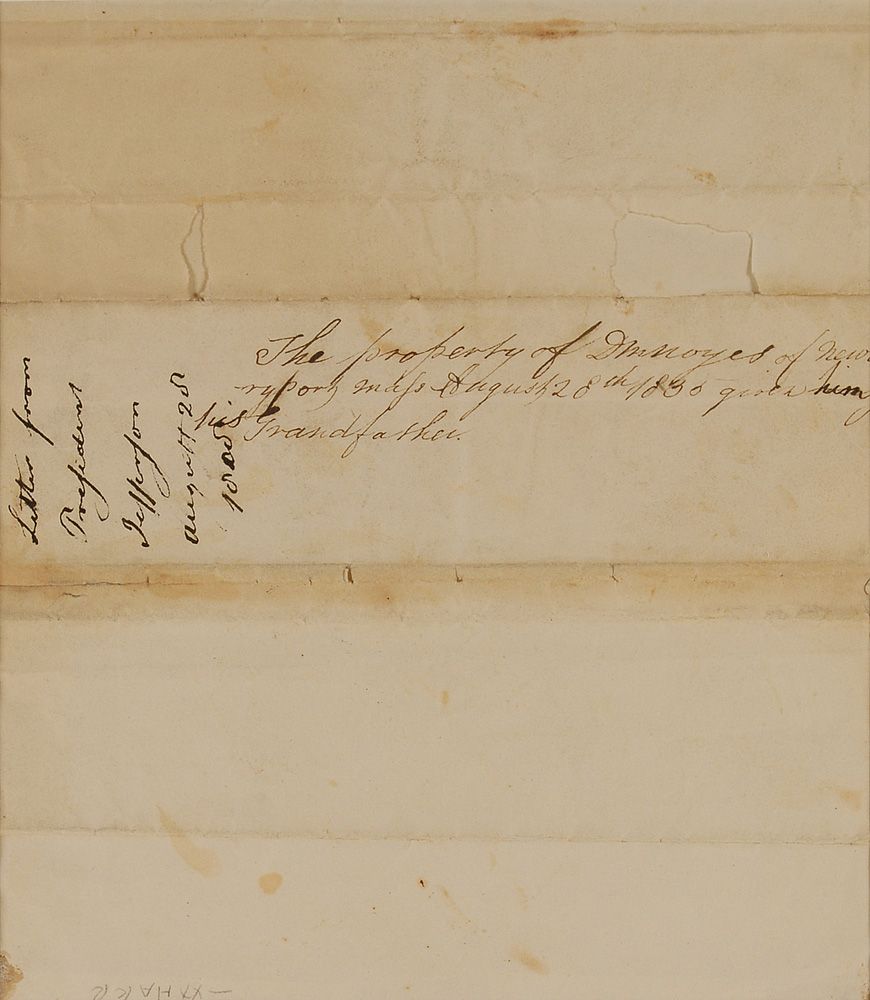 Letter from
President
Jefferson
August 28
1808
The property of D M Noyes of New
ryport Mass August 28th 1835 given him
his Grandfather.